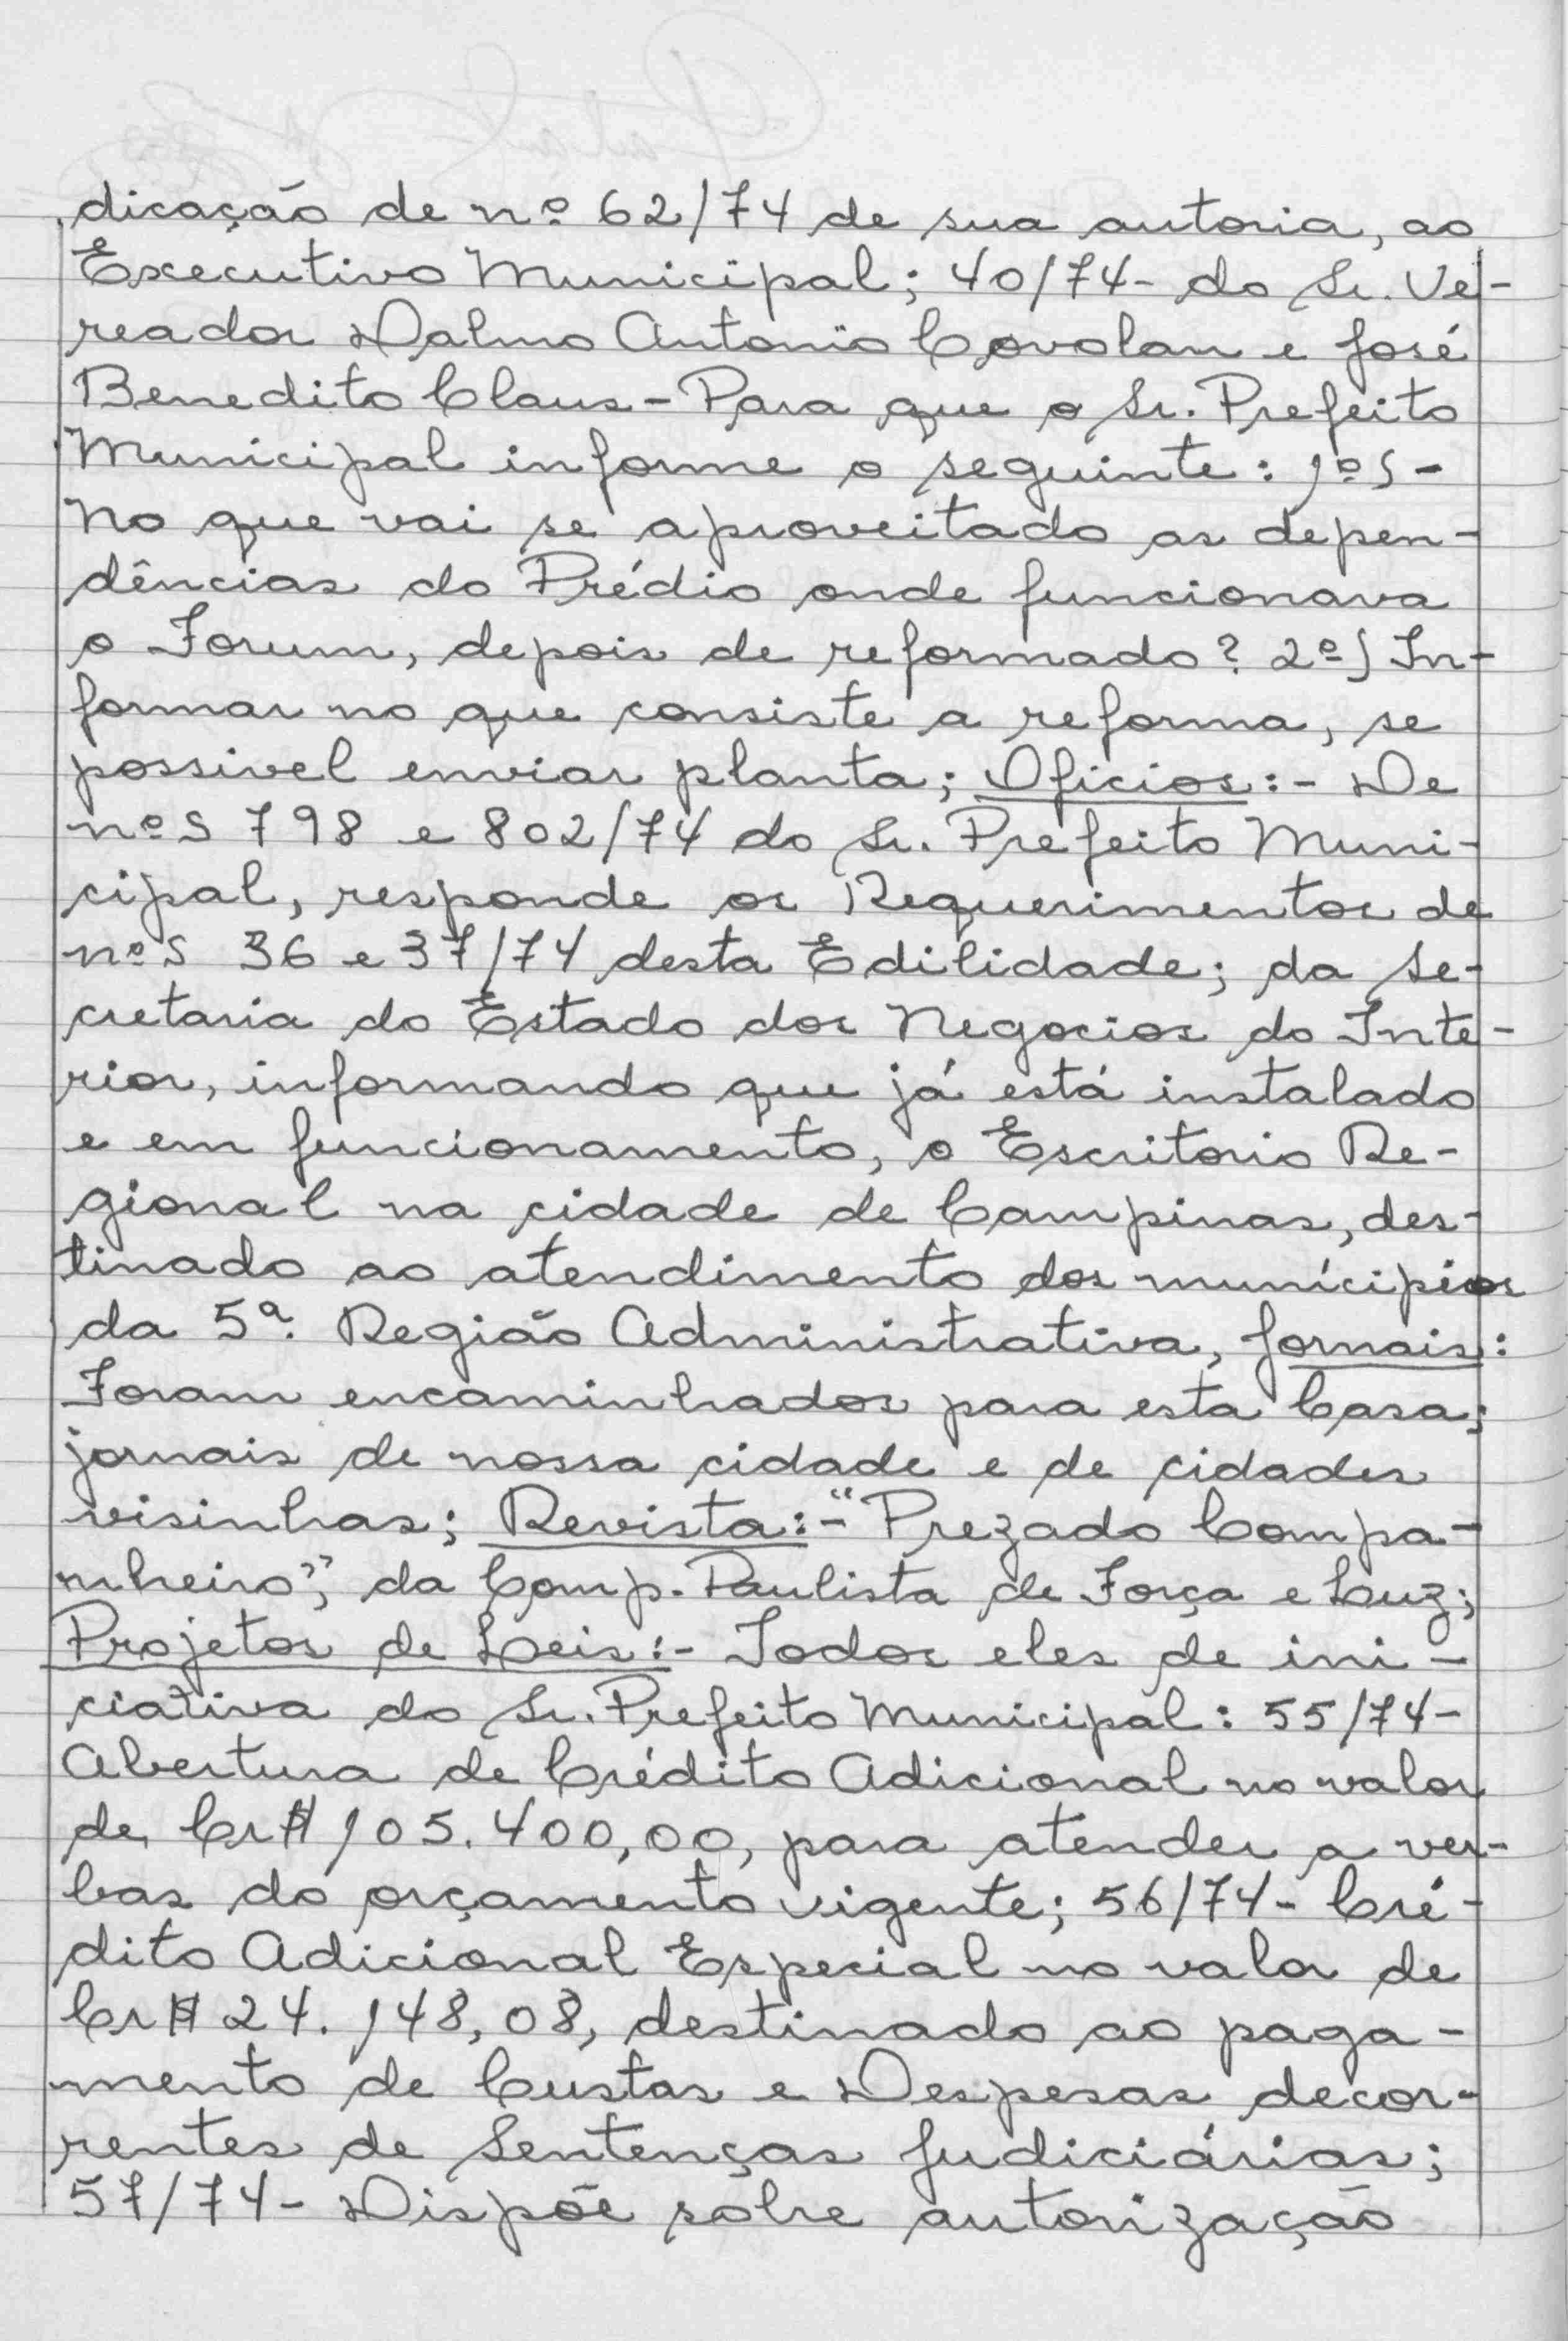 dicação de nº 62/74 de sua autoria, ao
Executivo Municipal; 40/74- do Sr. Ve-
reador Dalmo Antonio Covolan e José
Benedito Claus - Para que o Sr. Prefeito
Municipal informe o seguinte: 1º) -
No que vai se aproveitado as depen-
dências do Prédio onde funcionava
o Forum, depois de reformado? 2º) In-
formar no que consiste a reforma, se
possivel enviar planta; Oficios:- De
nºs 798 e 802/74 do Sr. Prefeito Muni-
cipal, responde os Requerimentos de
nºs 36 e 37/74 desta Edilidade; da Se-
cretaria do Estado dos Negocios do Inte-
rior, informando que já está instalado
e em funcionamento, o Escritorio Re-
gional na cidade de Campinas, des-
tinado ao atendimento dos munícipios
da 5ª. Região Administrativa, Jornais:
Foram encaminhados para esta Casa;
jornais de nossa cidade e de cidades
visinhas; Revista:- "Prezado Compa-
nheiro", da Comp. Paulista de Força e Luz;
Projetos de Leis:- Todos eles de ini-
ciativa do Sr. Prefeito Municipal: 55/74-
Abertura de Crédito Adicional no valor
de Cr$ 105.400,00, para atender a ver-
bas do orçamento vigente; 56/74- Cré-
dito Adicional Especial no valor de
Cr$ 24.148,08, destinado ao paga-
mento de Custas e Despesas decor-
rentes de Sentenças Judiciárias;
57/74- Dispõe sobre autorização